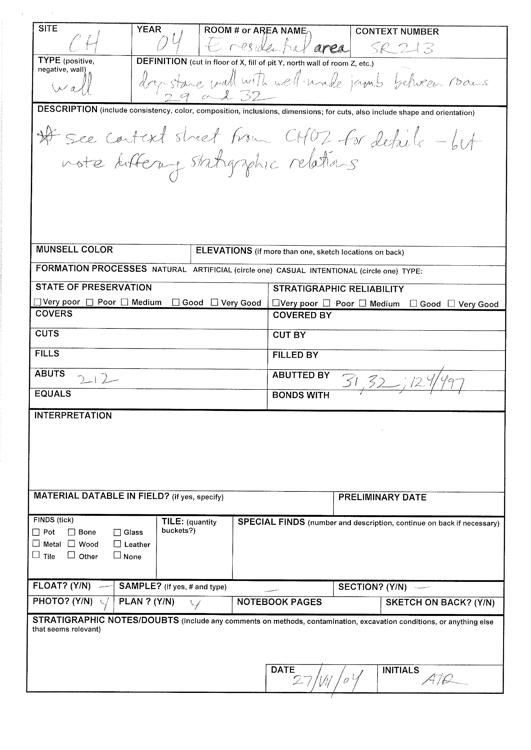 SITE CH YEAR 04 ROOM # or AREA NAME E residential area CONTEXT NUMBER SR213
TYPE (positive, negative, wall) wall DEFINITION (cut in floor of X, fill of pit Y, north wall of room Z, etc.)
dry stone wall with well-made jamb between rooms
29 and 32
DESCRIPTION (include consistency, color, composition, inclusions, dimensions; for cuts, also include shape and orientation)
* see context sheet from CH02 for details - but
note differing stratigraphic relations
MUNSELL COLOR ELEVATIONS (if more than one, sketch locations on back)
FORMATION PROCESSES NATURAL ARTIFICIAL (circle one) CASUAL INTENTIONAL (circle one) TYPE:
STATE OF PRESERVATION STRATIGRAPHIC RELIABILITY
☐ Very poor ☐ Poor ☐ Medium ☐ Good ☐ Very Good ☐ Very poor ☐ Poor ☐ Medium ☐ Good ☐ Very Good
COVERS COVERED BY
CUTS CUT BY
FILLS FILLED BY
ABUTS 212 ABUTTED BY 31, 32; 124/497
EQUALS BONDS WITH
INTERPRETATION
MATERIAL DATABLE IN FIELD? (if yes, specify) PRELIMINARY DATE
FINDS (tick) TILE: (quantity buckets?) SPECIAL FINDS (number and description, continue on back if necessary)
☐ Pot ☐ Bone ☐ Glass
☐ Metal ☐ Wood ☐ Leather
☐ Tile ☐ Other ☐ None
FLOAT? (Y/N) — SAMPLE? (if yes, # and type) — SECTION? (Y/N) —
PHOTO? (Y/N) Y PLAN ? (Y/N) Y NOTEBOOK PAGES SKETCH ON BACK? (Y/N)
STRATIGRAPHIC NOTES/DOUBTS (include any comments on methods, contamination, excavation conditions, or anything else
that seems relevant)
DATE 27/VII/04 INITIALS